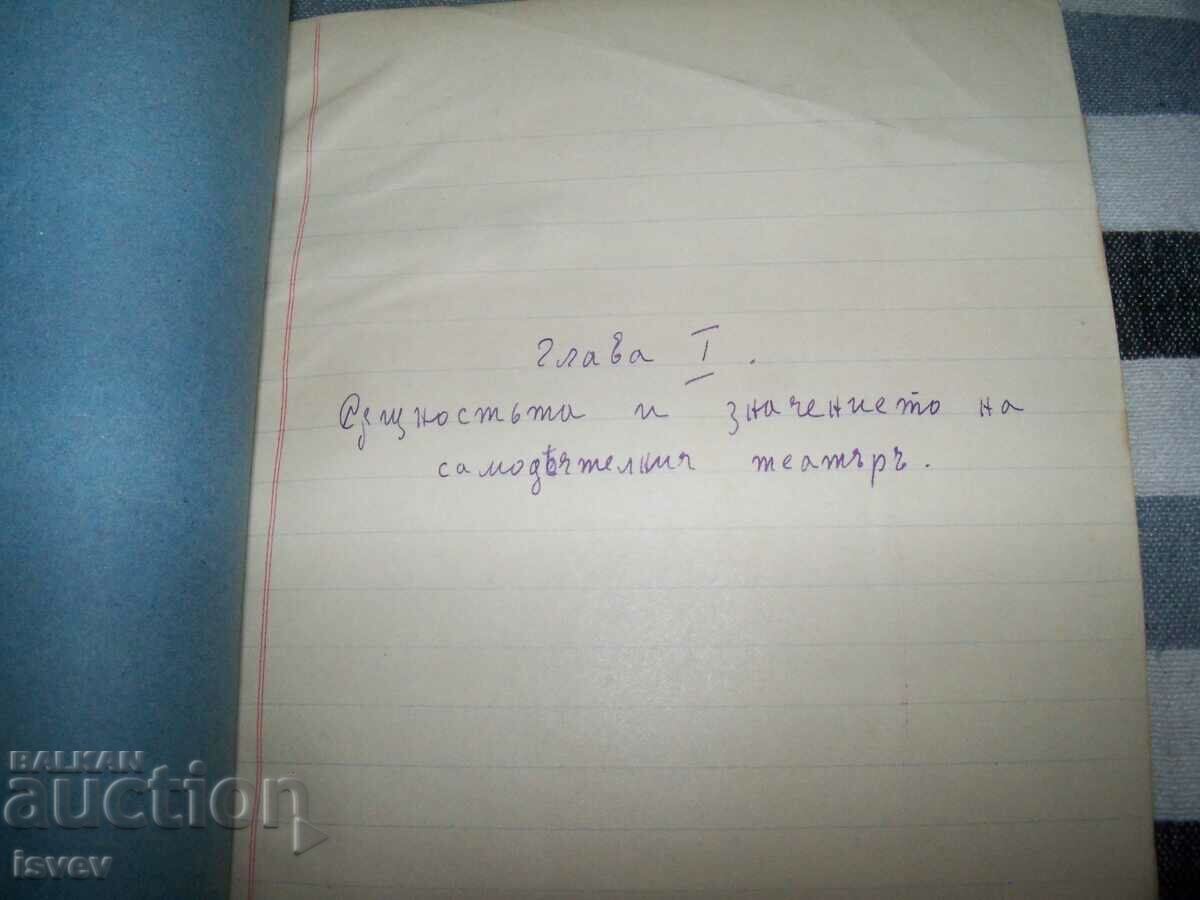 Глава I.
Същностьта и значението на
самодѣятелния театъръ.
BALKAN
auction
isvev